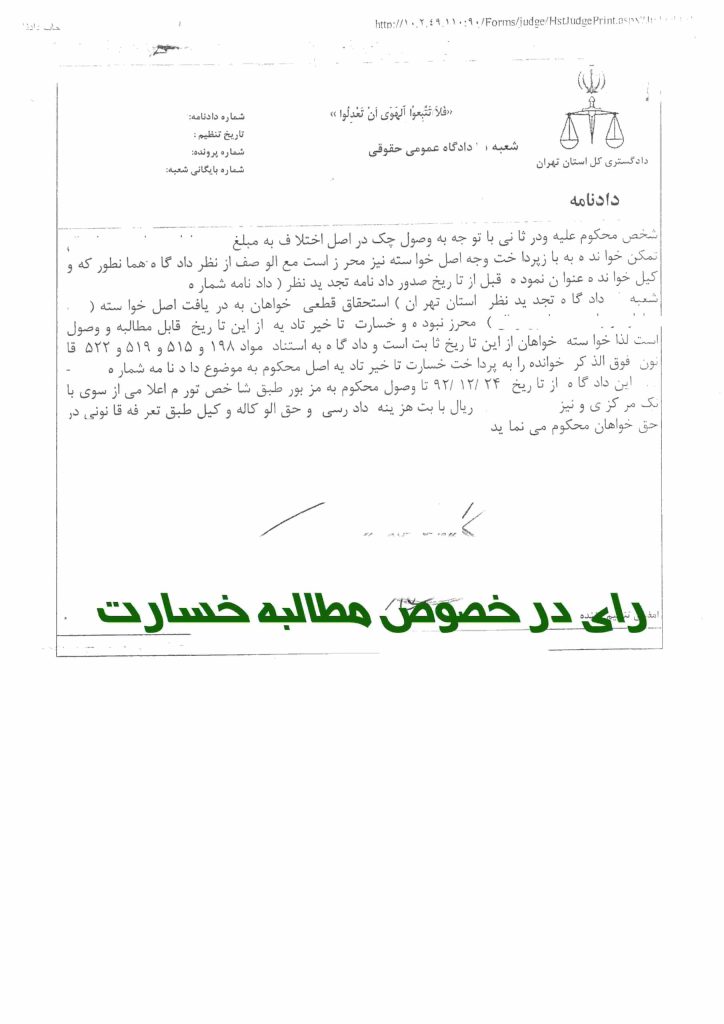 http://۱۰.۲.۴۹.۱۱۰:۹۰/Forms/judge/HstJudgePrint.aspx?
«فَلاَ تَتَّبِعوُا اَلهَوَی اَنْ تَعْدِلُوا»
شماره دادنامه:
تاریخ تنظیم :
شماره پرونده:
شماره بایگانی شعبه:
شعبه دادگاه عمومی حقوقی
دادگستری کل استان تهران
دادنامه
شخص محکوم علیه ودر ثا نی با تو جه به وصول چک در اصل اختلا ف به مبلغ
تمکن خوا ند ه به با زپردا خت وجه اصل خوا سته نیز محر ز است مع الو صف از نظر داد گا ه هما نطور که و
کیل خوا ند ه عنوا ن نمود ه قبل از تا ریخ صدور داد نامه تجد ید نظر ( داد نامه شمار ه
شعبه داد گا ه تجد ید نظر استان تهر ان ) استحقاق قطعی خواهان به در یافت اصل خوا سته (
) محرز نبود ه و خسارت تا خیر تاد یه از این تا ریخ قابل مطالبه و وصول
است لذا خوا سته خواهان از این تا ریخ ثا بت است و داد گا ه به استناد مواد ۱۹۸ و ۵۱۵ و ۵۱۹ و ۵۲۲ قا
نون فوق الذ کر خوانده را به پردا خت خسارت تا خیر تاد یه اصل محکوم به موضوع دا د نا مه شمار ه -
این داد گا ه از تا ریخ ۲۴ /۱۲ /۹۲ تا وصول محکوم به مز بور طبق شا خص تور م اعلا می از سوی با
نک مر کز ی و نیز ریال با بت هز ینه داد رسی و حق الو کاله و کیل طبق تعر فه قا نونی در
حق خواهان محکوم می نما ید
رای در خصوص مطالبه خسارت